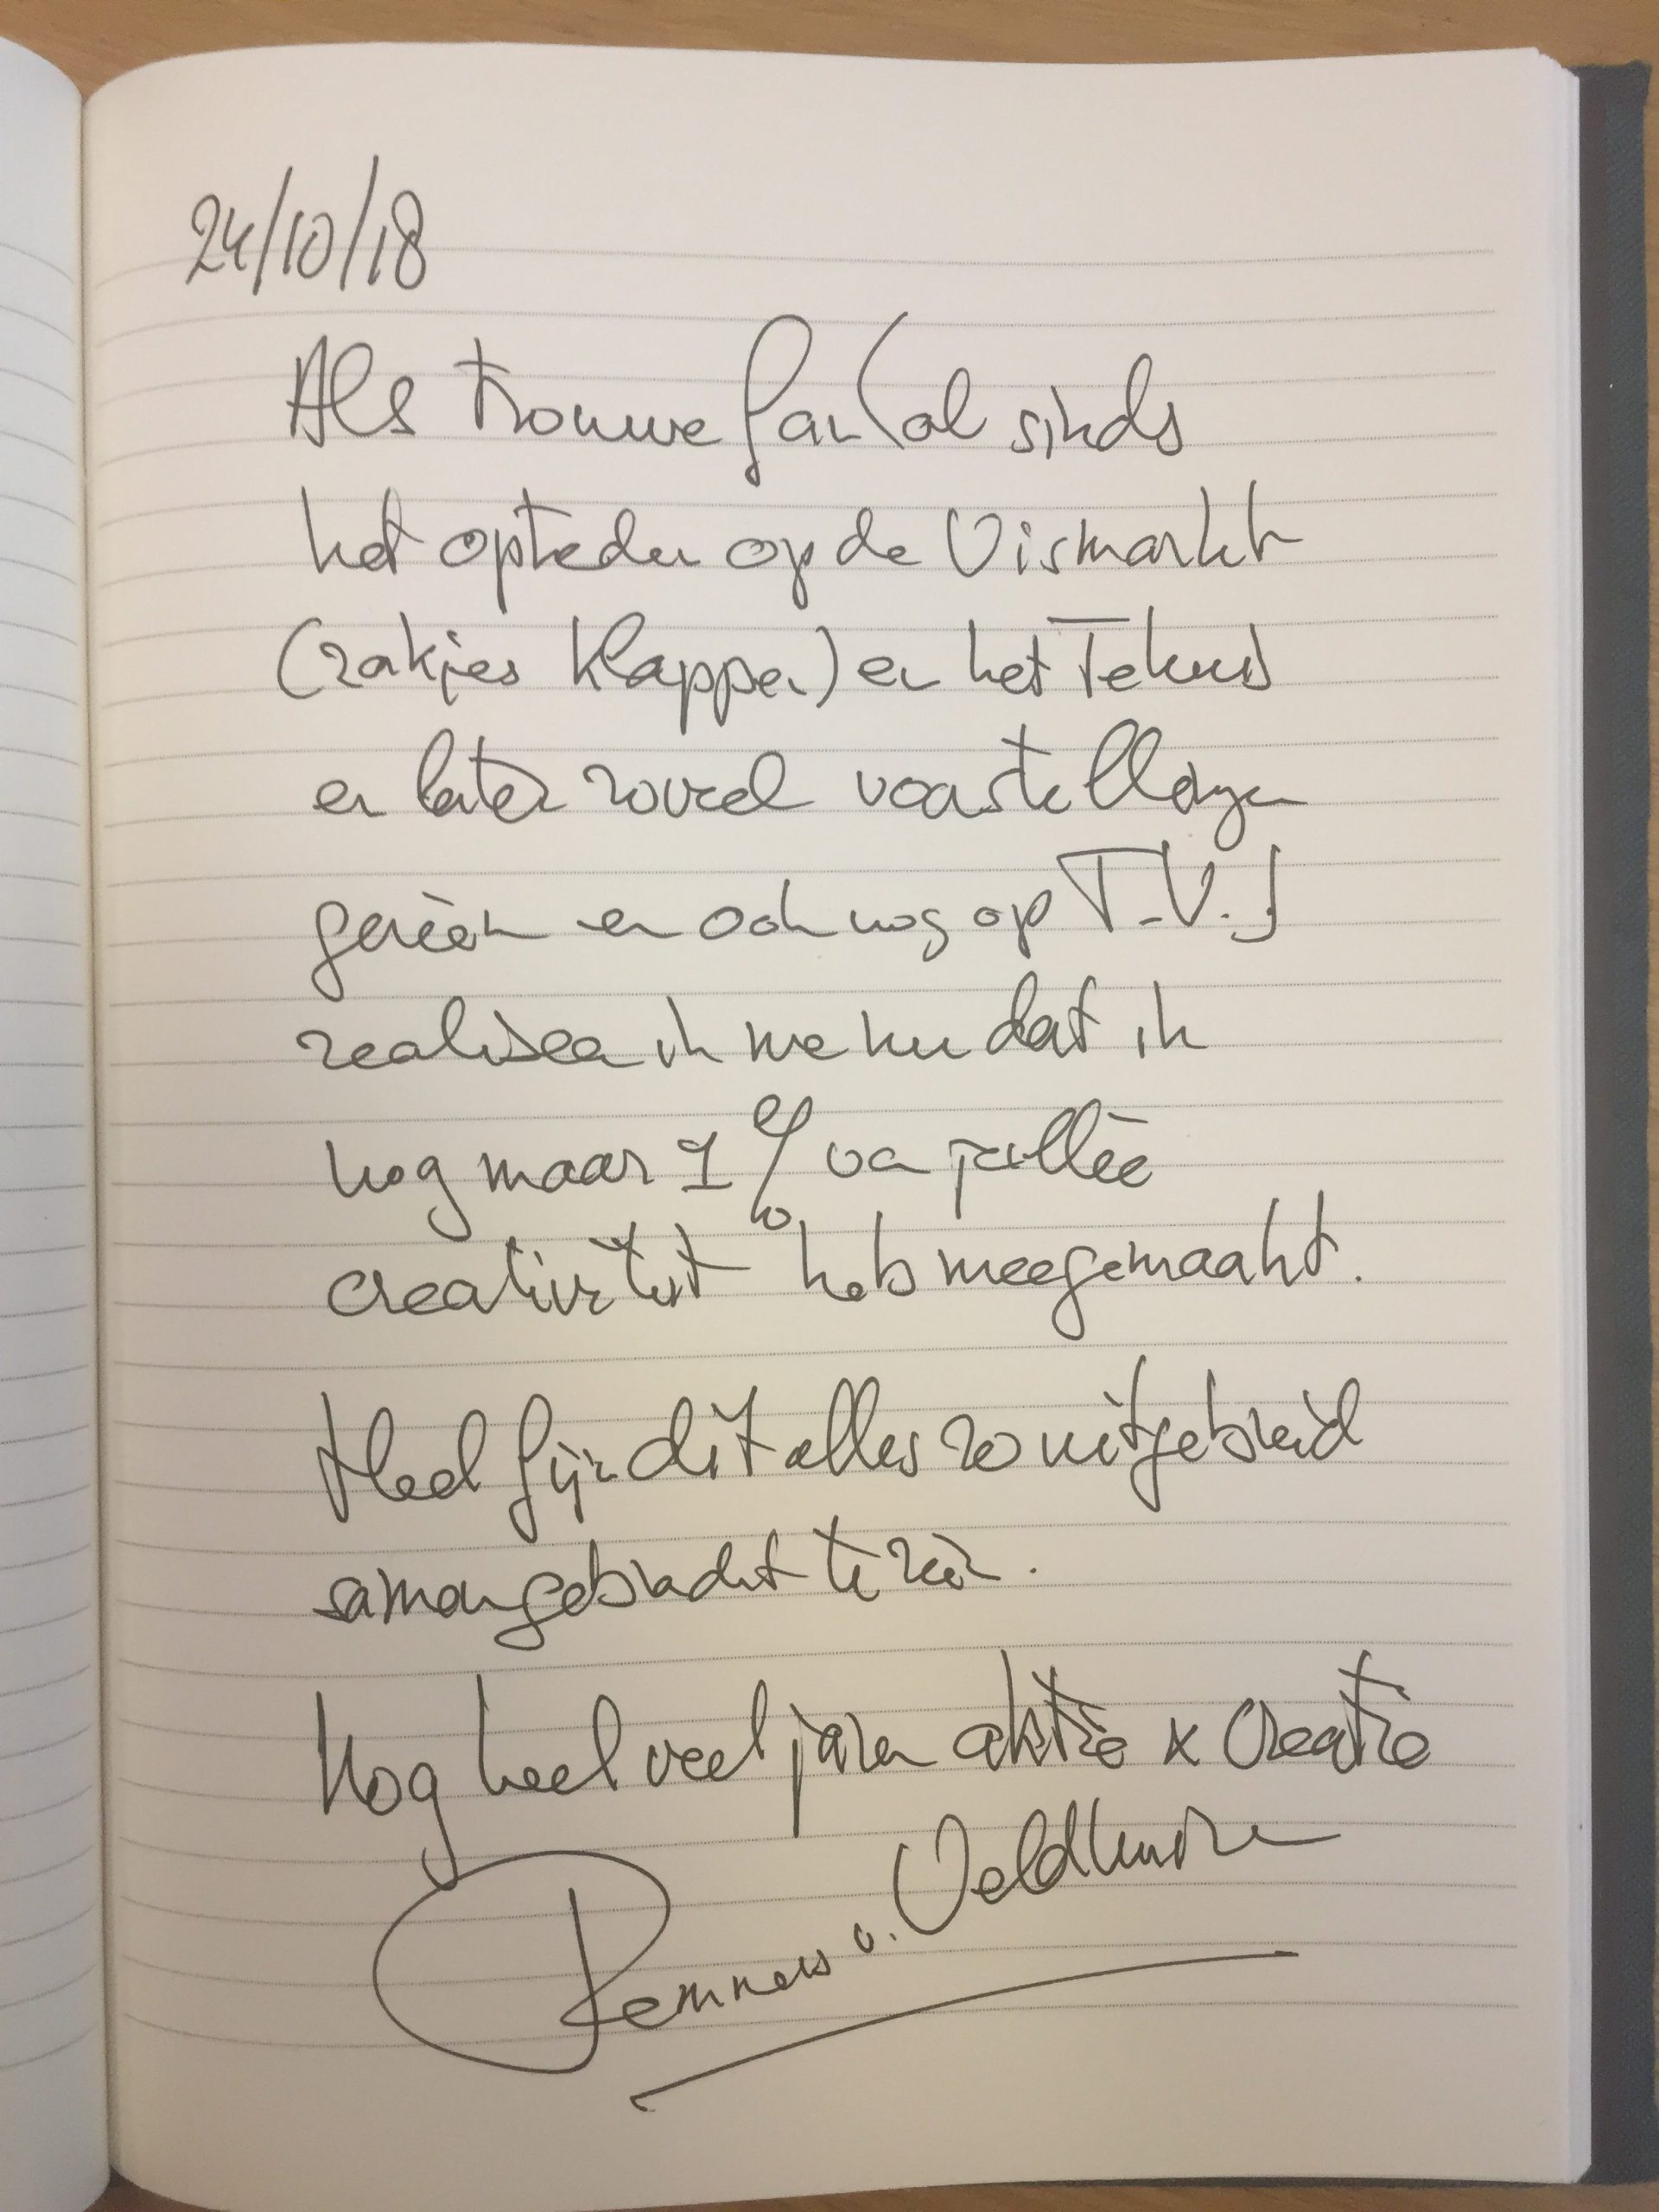 24/10/18
Als trouwe fan (al sinds
het optreden op de Vismarkt
(zakjes klappen) en het Tehuis
en later zoveel voorstellingen
gezien en ook nog op T.V.)
realiseer ik me nu dat ik
nog maar 1% van jullie
creativiteit heb meegemaakt.
Heel fijn dit alles zo uitgebreid
samengebracht te zien.
Nog heel veel jaren aktie x creatie
v. Veldhuizen